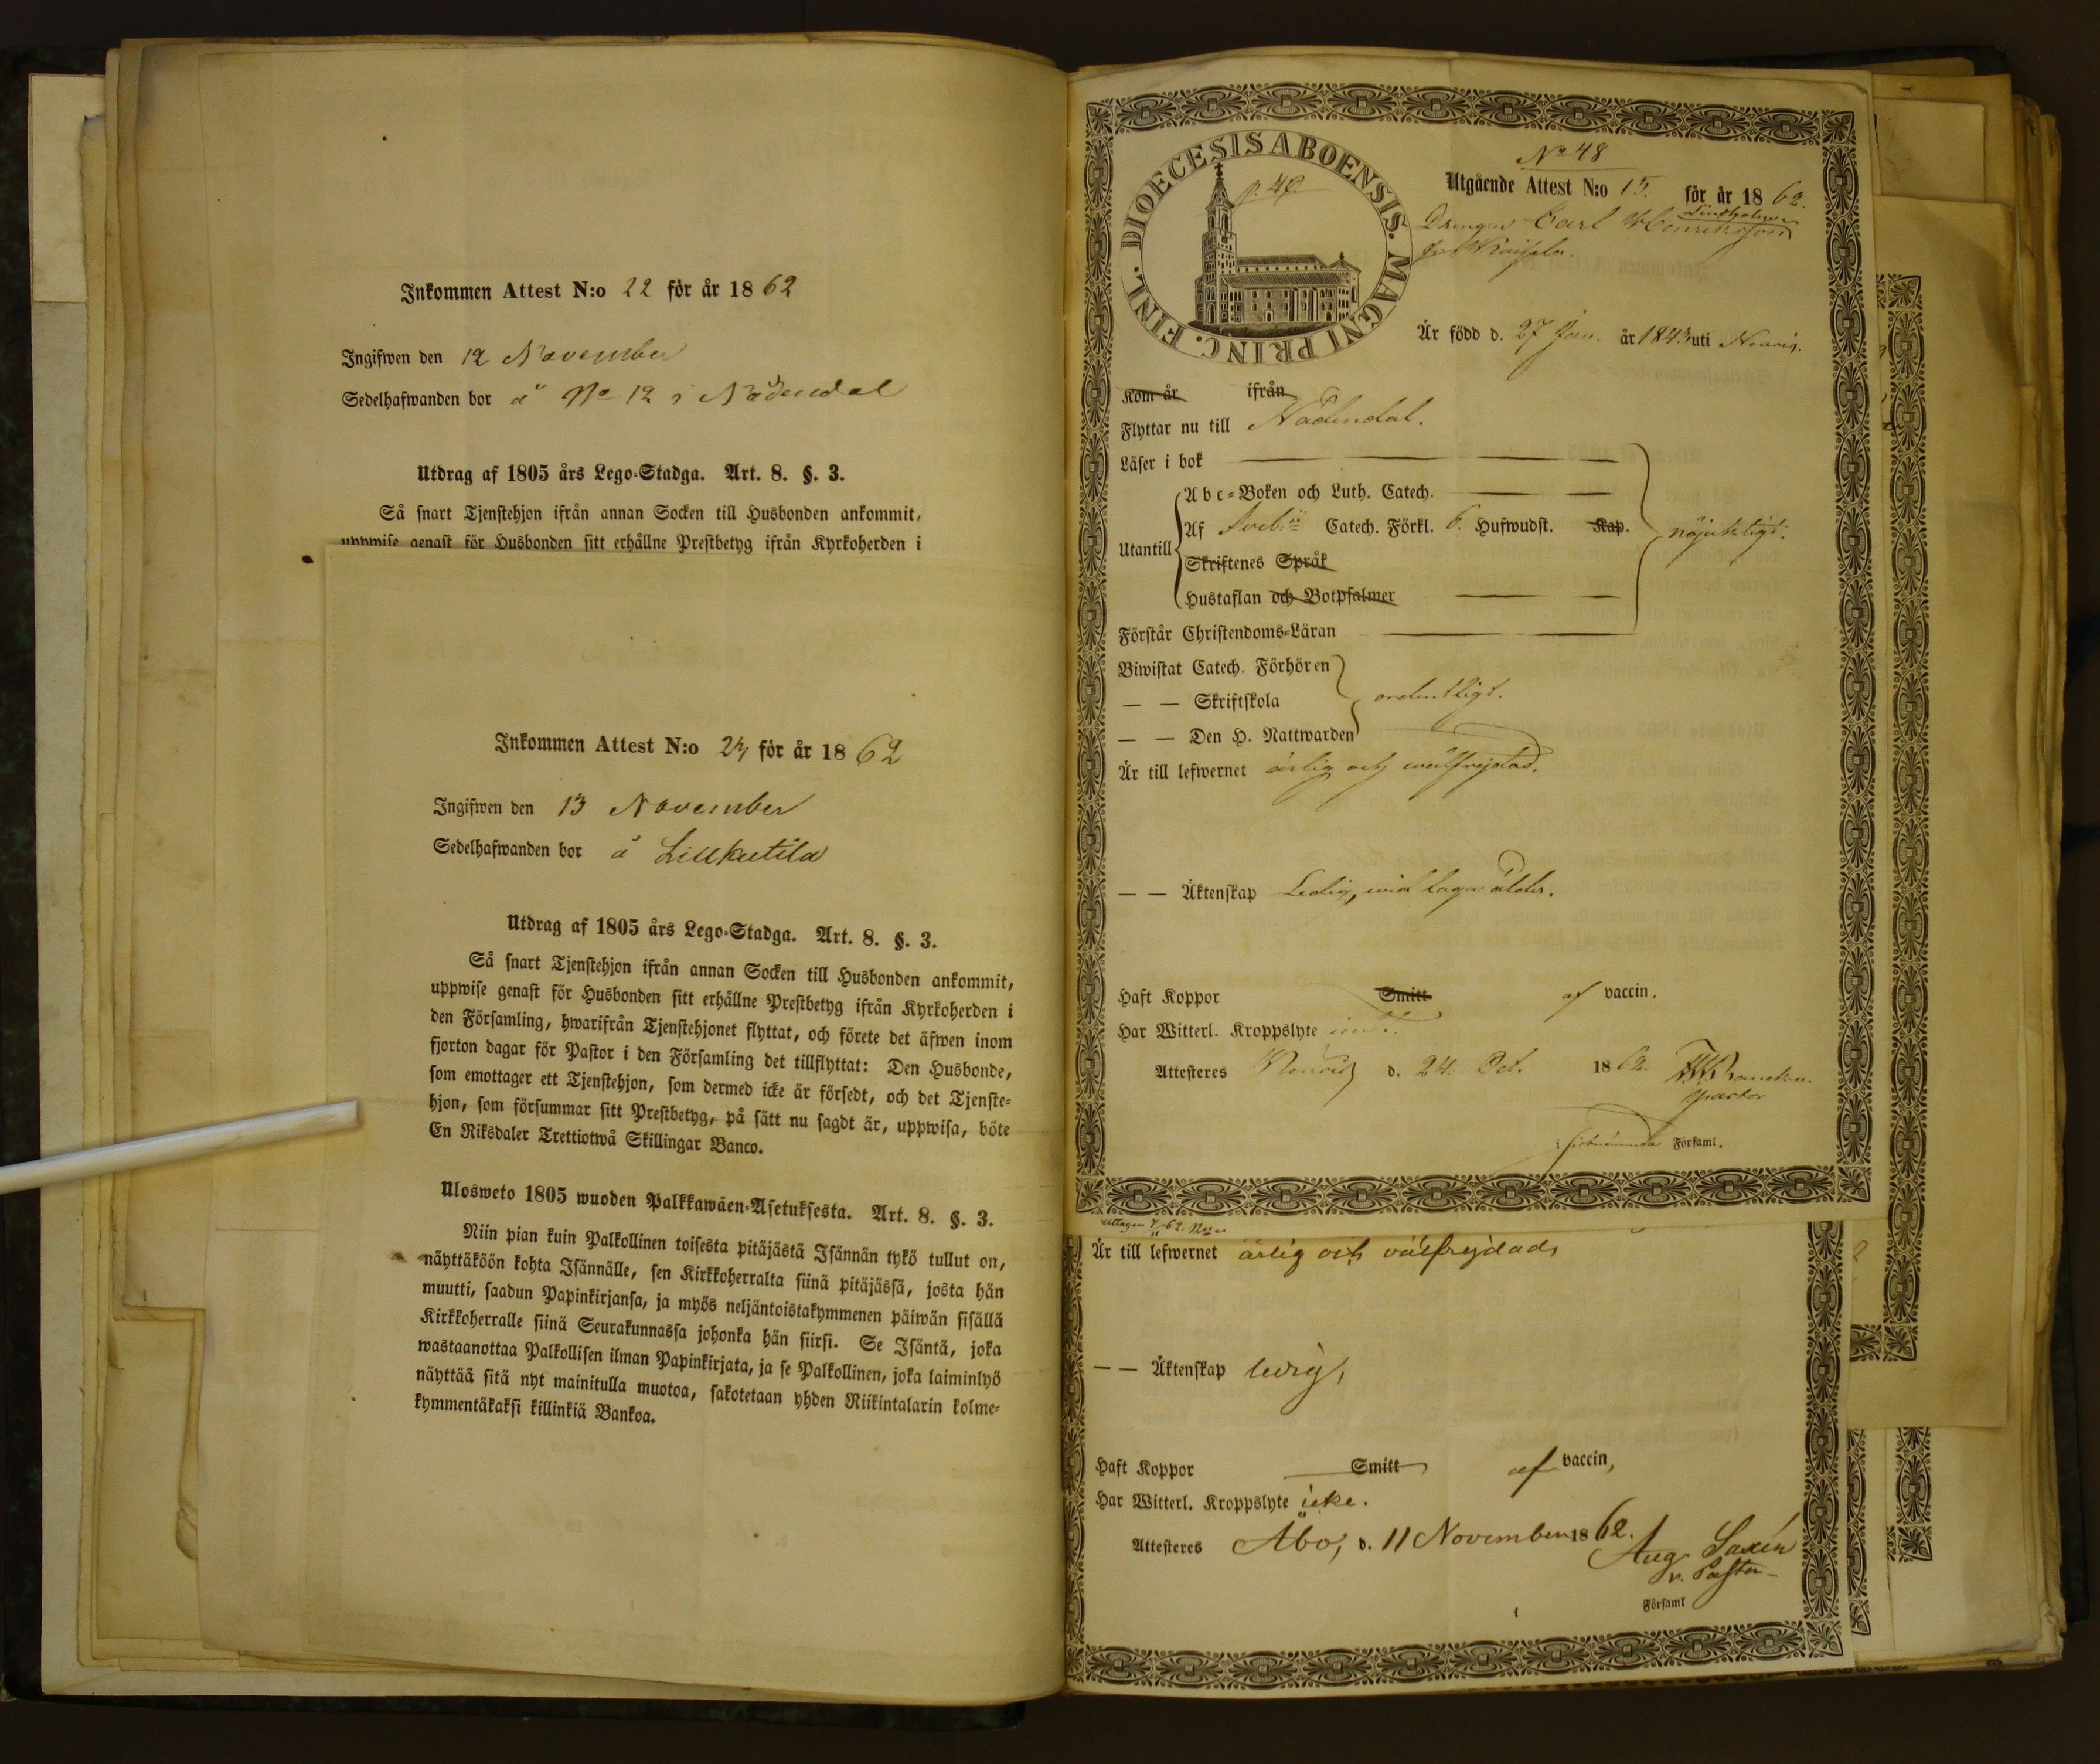 Inkommen Attest N:o 22 för år 1862
Ingifwen den 12 November
Sedelhafwanden bor å No 12 i Nådendal
Utdrag af 1805 års Lego-Stadga. Art. 8. §. 3.
Så snart Tjenstehjon ifrån annan Socken till Husbonden ankommit,
uppwise genast för Husbonden sitt erhållne Prestbetyg ifrån Kyrkoherden i
Inkommen Attest N:o 23 för år 1862
Ingifwen den 13 November
Sedelhafwanden bor å
Utdrag af 1805 års Lego-Stadga. Art. 8. §. 3.
Så snart Tjenstehjon ifrån annan Socken till Husbonden ankommit,
uppwise genast för Husbonden sitt erhållne Prestbetyg ifrån Kyrkoherden i
den Församling, hwarifrån Tjenstehjonet flyttat, och förete det äfwen inom
fjorton dagar för Pastor i den Församling det tillflyttat: Den Husbonde,
som emottager ett Tjenstehjon, som dermed icke är försedt, och det Tjenste-
hjon, som försummar sitt Prestbetyg, på sätt nu sagdt är, uppwisa, böte
En Riksdaler Trettiotwå Skillingar Banco.
Ulosweto 1805 wuoden Palkkawäen-Asetuksesta. Art. 8. §. 3.
Niin pian kuin Palkollinen toisesta pitäjästä Isännän tykö tullut on,
näyttäköön kohta Isännälle, sen Kirkkoherralta siinä pitäjässä, josta hän
muutti, saadun Papinkirjansa, ja myös neljäntoistakymmenen päiwän sisällä
Kirkkoherralle siinä Seurakunnassa johonka hän siirsi. Se Isäntä, joka
wastaanottaa Palkollisen ilman Papinkirjata, ja se Palkollinen, joka laiminlyö
näyttää sitä nyt mainitulla muotoa, sakotetaan yhden Riikintalarin kolme-
kymmentäkaksi killinkiä Bankoa.
DIOECESIS ABOENSIS. MAGNI PRINC. FINL.
No 48
Utgående Attest N:o 15. för år 1862.
Lindholm
Drengen Carl Henriksson
Är född d. 27 Jan. år 1843 uti Nousis.
Kom år ifrån
Flyttar nu till Nådendal.
Läser i bok
Abc-Boken och Luth. Catech.
Af Sveb. Catech. Förkl. 6. Hufwudst. Kap.
Utantill
nöjaktligt.
Skriftenes Språk
Hustaflan och Botpsalmer
Förstår Christendoms-Läran
Biwistat Catech. Förhören
— — Skriftskola ordentligt.
— — Den H. Nattwarden
Är till lefwernet ärlig och wälfrejdad.
— — Äktenskap Ledig, wid laga ålder.
Haft Koppor Smitt af vaccin.
Har Witterl. Kroppslyte
Attesteres Nousis d. 24. Oct. 1862.
Pastor
i förenämnda Församl.
Är till lefwernet ärlig och välfrejdad,
— — Äktenskap ledig,
Haft Koppor Smitt af vaccin,
Har Witterl. Kroppslyte icke.
Attesteres Åbo, d. 11 November 1862.
Aug. Saxén
v. Pastor
Församl